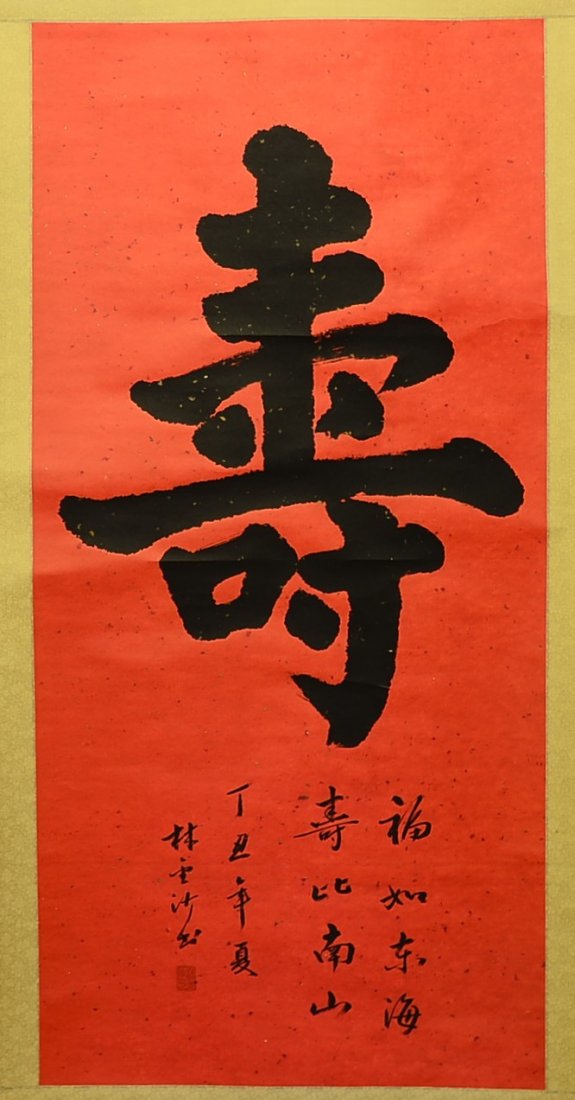 壽
福如东海
壽比南山
丁丑年夏
林云